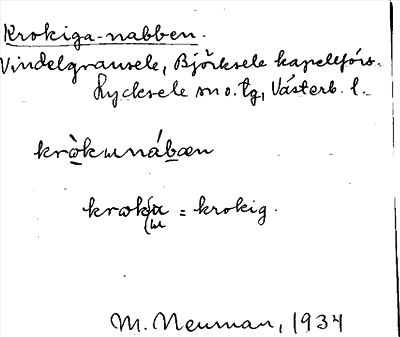 Krokiga-nabben.
Vindelgransele, Björksele kapellförs.
Lycksele sn o. tg, Västerb. l.
kròkɯnábæn
krokɯ = krokig.
M. Neuman, 1934